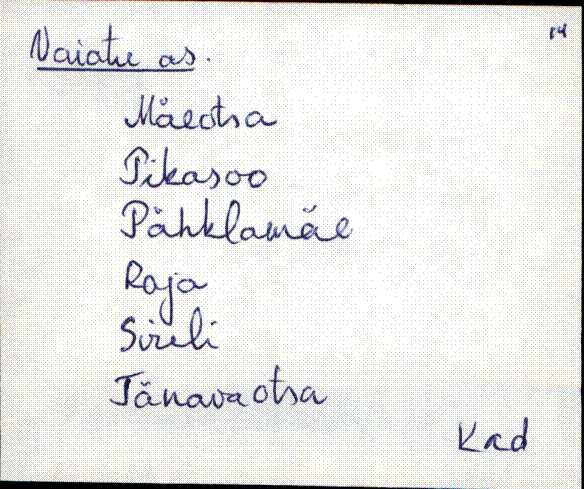 14
Vaiatu as.
Mäeotsa
Pikasoo
Pähklamäe
Raja
Sireli
Tänavaotsa
Kad